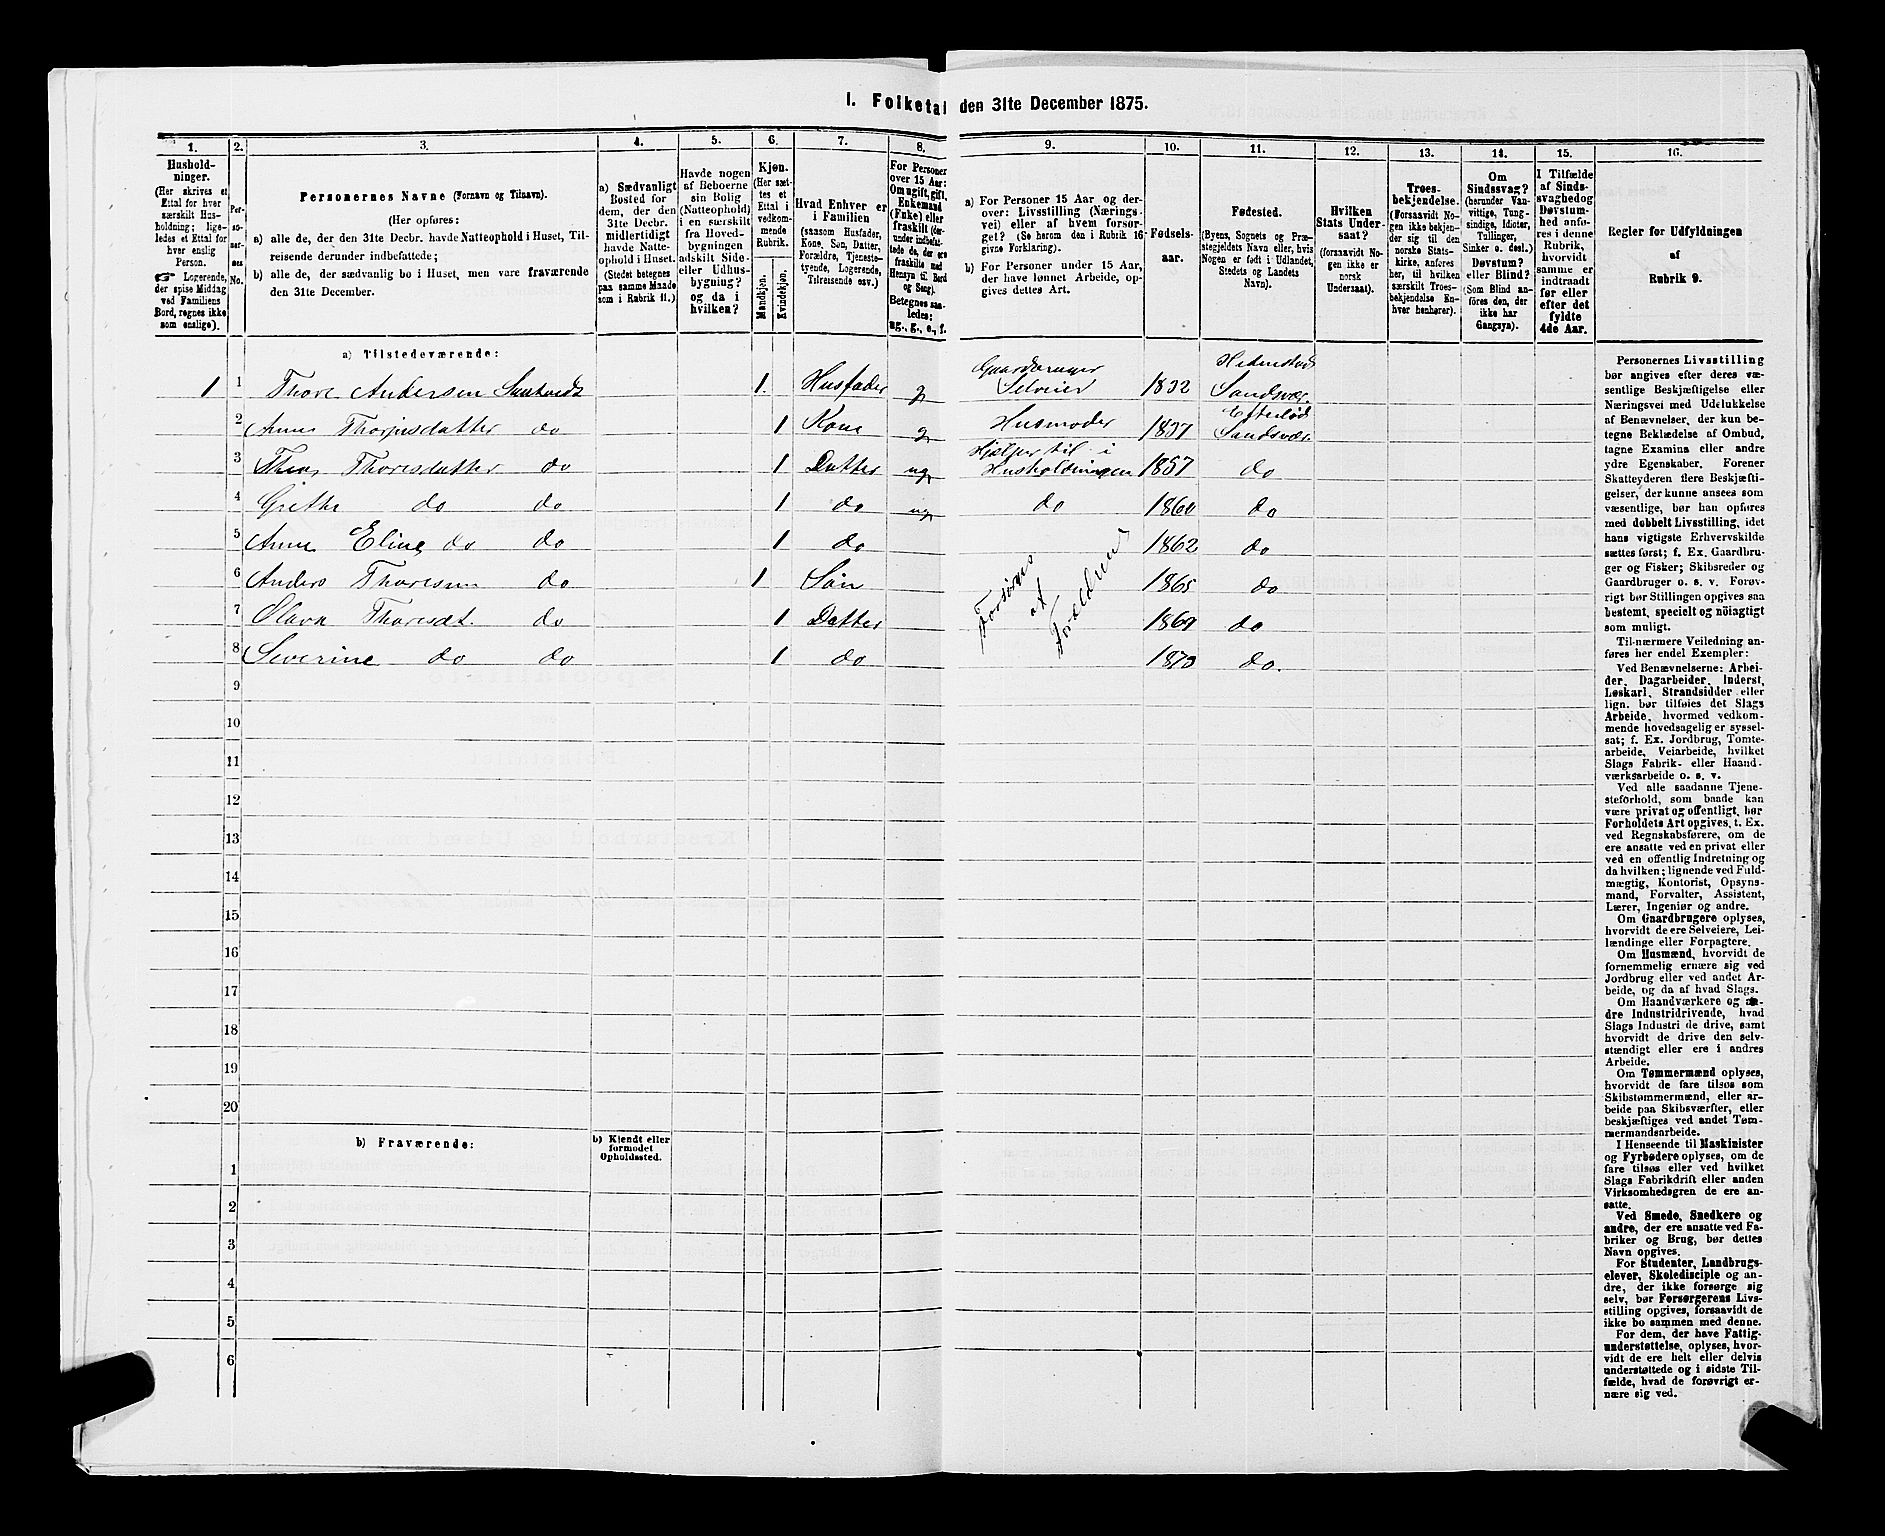 I. Folketal den 31te December 1875.
1. 2. 3. 4. 5. 6. 7. 8. 9. 10. 11. 12. 13. 14. 15. 16.
Hushold-
ninger.
(Her skrives et
Ettal for hver
særskilt Hus-
holdning; lige-
ledes et Ettal for
hver enslig
Person.
☞ Logerende,
der spise Middag
ved Familiens
Bord, regnes ikke
som enslige).
Per-
so-
ner-
nes
No.
Personernes Navne (Fornavn og Tilnavn).
(Her opføres:
a) alle de, der den 31te Decbr. havde Natteophold i Huset, Til-
reisende derunder indbefattede;
b) alle de, der sædvanlig bo i Huset, men vare fraværende
den 31te December.
a) Sædvanligt
Bosted for
dem, der den
31te Decbr.
midlertidigt
havde Natte-
ophold i Huset.
(Stedet betegnes
paa samme Maade
som i Rubrik 11.)
Havde nogen
af Beboerne
sin Bolig
(Natteophold)
i en særskilt
fra Hoved-
bygningen
adskilt Side-
eller Udhus-
bygning?
og da i
hvilken?
Kjøn.
(Her sæt-
tes et
Ettal i
vedkom-
mende
Rubrik.
Mandkjøn.
Kvindekjøn.
Hvad Enhver er
i Familien
(saasom Husfader,
Kone, Søn, Datter,
Forældre, Tjeneste-
tyende, Logerende,
Tilreisende osv.)
For Personer
over 15 Aar:
Om ugift, gift,
Enkemand
(Enke) eller
fraskilt (der-
under indbefat-
tede de, der ere
fraskilte med
Hensyn til Bord
og Seng).
Betegnes saa-
ledes:
ug., g., e., f.
a) For Personer 15 Aar og der-
over: Livsstilling (Nærings-
vei) eller af hvem forsør-
get? (Se herom den i Rubrik 16
givne Forklaring).
b) For Personer under 15 Aar,
der have lønnet Arbeide, op-
gives dettes Art.
Fødsels-
aar.
Fødested.
(Byens, Sognets og Præ-
stegjeldets Navn eller, hvis
Nogen er født i Udlandet,
Stedets og Landets
Navn).
Hvilken
Stats Under-
saat?
(foraavidt No-
gen ikke er
norsk
Undersaat).
Troes-
bekjendelse.
(Forsaavidt No-
gen ikke bekjen-
der sig til den
norske Stats-
kirke, anføres
her, til hvilken
særskilt Troes-
bekjendelse En-
hver henhører).
Om
Sindssvag?
(herunder Van-
vittige, Tung-
sindige, Idioter,
Tullinger,
Sinker o. desl.)
Døvstum?
eller Blind?
(Som Blind an-
føres den, der
ikke har
Gangsyn).
I Tilfælde
af Sinds-
svaghed og
Døvstum-
hed anfø-
res i denne
Rubrik,
hvorvidt
samme er
indtraadt
før eller
efter det
fyldte
4de Aar.
Regler for Udfyldningen
af
Rubrik 9.
a) Tilstedeværende:
1 1 Thore Andersen 1. Husfader g Gaardbruger Selveier 1832 Sandsvær.
2 Anne do 1 Kone g Husmoder 1837 Eftelød Sandsvær
3 Thoresdatter do 1 Datter ug Hjælper til i Husholdningen 1857 do
4 Grethe do do 1 do ug do 1860 do
5 Anne Eline do do 1 do 1862 do
6 Anders Thoresen do 1 Søn 1865 do
7 Olava Thoresdt. do 1 Datter 1869 do
8 Severine do do 1 do 1873 do.
Forsørges
af
Forældrene
9
10
11
12
13
14
15
16
17
18
19
20
b) Fraværende:
b) Kjendt eller
formodet
Opholdssted.
1
2
3
4
5
6
Personernes Livsstilling
bør angives efter deres væ-
sentlige Beskjæftigelse eller
Næringsvei med Udelukkelse
af Benævnelser, der kun be-
tegne Beklædelse af Ombud,
tagne Examina eller andre
ydre Egenskaber. Forener
Skatteyderen flere Beskjæfti-
gelser, der kunne ansees som
væsentlige, bør han opføres
med dobbelt Livsstilling, idet
hans vigtigste Erhvervskilde
sættes først; f. Ex. Gaardbru-
ger og Fisker; Skibsreder og
Gaardbruger o. s. v. Forøv-
rigt bør Stillingen opgives saa
bestemt, specielt og nöiagtigt
som muligt.
Til nærmere Veiledning an-
føres her endel Exempler:
Ved Benævnelserne: Arbei-
der, Dagarbeider, Inderst,
Løskarl, Strandsidder eller
lign. bør tilføies det Slags
Arbeide, hvormed vedkom-
mende hovedsagelig er syssel-
sat; f. Ex. Jordbrug, Tomte-
arbeide, Veiarbeide, hvilket
Slags Fabrik- eller Haand-
værksarbeide o. s. v.
Ved alle saadanne Tjene-
steforhold, som baade kan
være privat og offentligt, bør
Forholdets Art opgives, t. Ex.
ved Regnskabsførere, om de
ere ansatte ved en privat eller
ved en offentlig Indretning og
da hvilken; lignende ved Fuld-
mægtig, Kontorist, Opsyns-
mand, Forvalter, Assistent,
Lærer, Ingeniør og andre.
Om Gaardbrugere oplyses,
hvorvidt de ere Selveiere, Lei-
lændinge eller Forpagtere.
Om Husmænd, hvorvidt de
fornemmelig ernære sig ved
Jordbrug eller ved andet Ar-
beide, og da af hvad Slags.
Om Haandværkere og an-
dre Industridrivende, hvad
Slags Industri de drive, samt
hvorvidt de drive den selv-
stændigt eller ere i andres
Arbeide.
Om Tømmermænd oplyses,
hvorvidt de fare tilsøs som
Skibstømmermænd, eller ar-
beide paa Skibsværfter, eller
beskjæftiges ved andet Tøm-
mermandsarbeide.
I Henseende til Maskinister
og Fyrbødere oplyses, om de
fare tilsøs eller ved hvilket
Slags Fabrikdrift eller anden
Virksomhedsgren de ere an-
satte.
Ved Smede, Snedkere og
andre, der ere ansatte ved Fa-
briker og Brug, bør dettes
Navn opgives.
For Studenter, Landbrugs-
elever, Skoledisciple og an-
dre, der ikke forsørge sig
selv, bør Forsørgerens Livs-
stilling opgives, forsaavidt de
ikke bo sammen med denne.
For dem, der have Fattig-
understøttelse, oplyses, hvor-
vidt de ere helt eller delvis
understøttede og i sidste Til-
fælde, hvad de forøvrigt er-
nære sig ved.